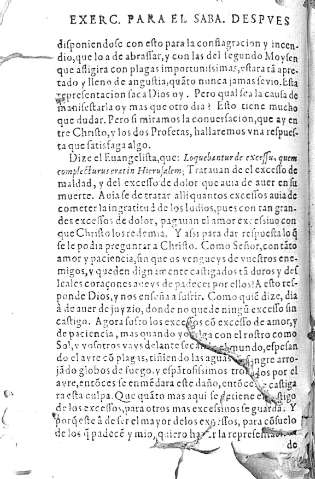 EXERC. PARA EL SABA. DESPVES
disponiendose con esto para la conflagracion y incen-
dio, que lo a de abrassar, y con las del segundo Moysen
que afligira con plagas importunissimas, estara tā apre-
tado y lleno de angustia, quāto nunca jamas se vio. Esta
representacion saca Dios oy. Pero qual sea la causa de
manifestarla oy mas que otro dia? Esto tiene mucho
que dudar. Pero si miramos la conuersacion, que ay en-
tre Christo, y los dos Profetas, hallaremos vna respues-
ta que satisfaga algo.
Dize el Euangelista, que: Loquebantur de excessu, quem
complecturus erat in Hierusalem; Tratauan de el excesso de
maldad, y del excesso de dolor que auia de auer en su
muerte. Auia se de tratar alli quantos excessos auia de
cometer la ingratitud de los Iudios, pues con tan gran-
des excessos de dolor, pagauan el amor excessiuo con
que Christo los redemia. Y assi para dar respuesta lo q̃
se le podia preguntar a Christo. Como Señor, con tāto
amor y paciencia, sin que os vengueys de vuestros ene-
migos, y queden dignamente castigados tā duros y des
leales coraçones aueys de padecer por ellos? A esto res-
ponde Dios, y nos enseña a sufrir. Como quiē dize, dia
á de auer de juyzio, donde no quede ningū excesso sin
castigo. Agora sufro los excessos cō excesso de amor, y
de paciencia, mas quando yo salga con el rostro como
Sol, y vosotros vays delante secando el mundo, espesan
do el ayre cō plagas, tiñiendo las aguas sangre arro-
jādo globos de fuego, y espātosissimos por el
ayre, entōces se enmēdara este daño, entōces castiga
ra esta culpa. Que quāto mas aqui se detiene el castigo
de los excessos, para otros mas excessiuos se guarda. Y
porq̃ este á de ser el mayor de los excessos, para cōsuelo
de los q̃ padecē y mio, quiero hazer la representacion
de